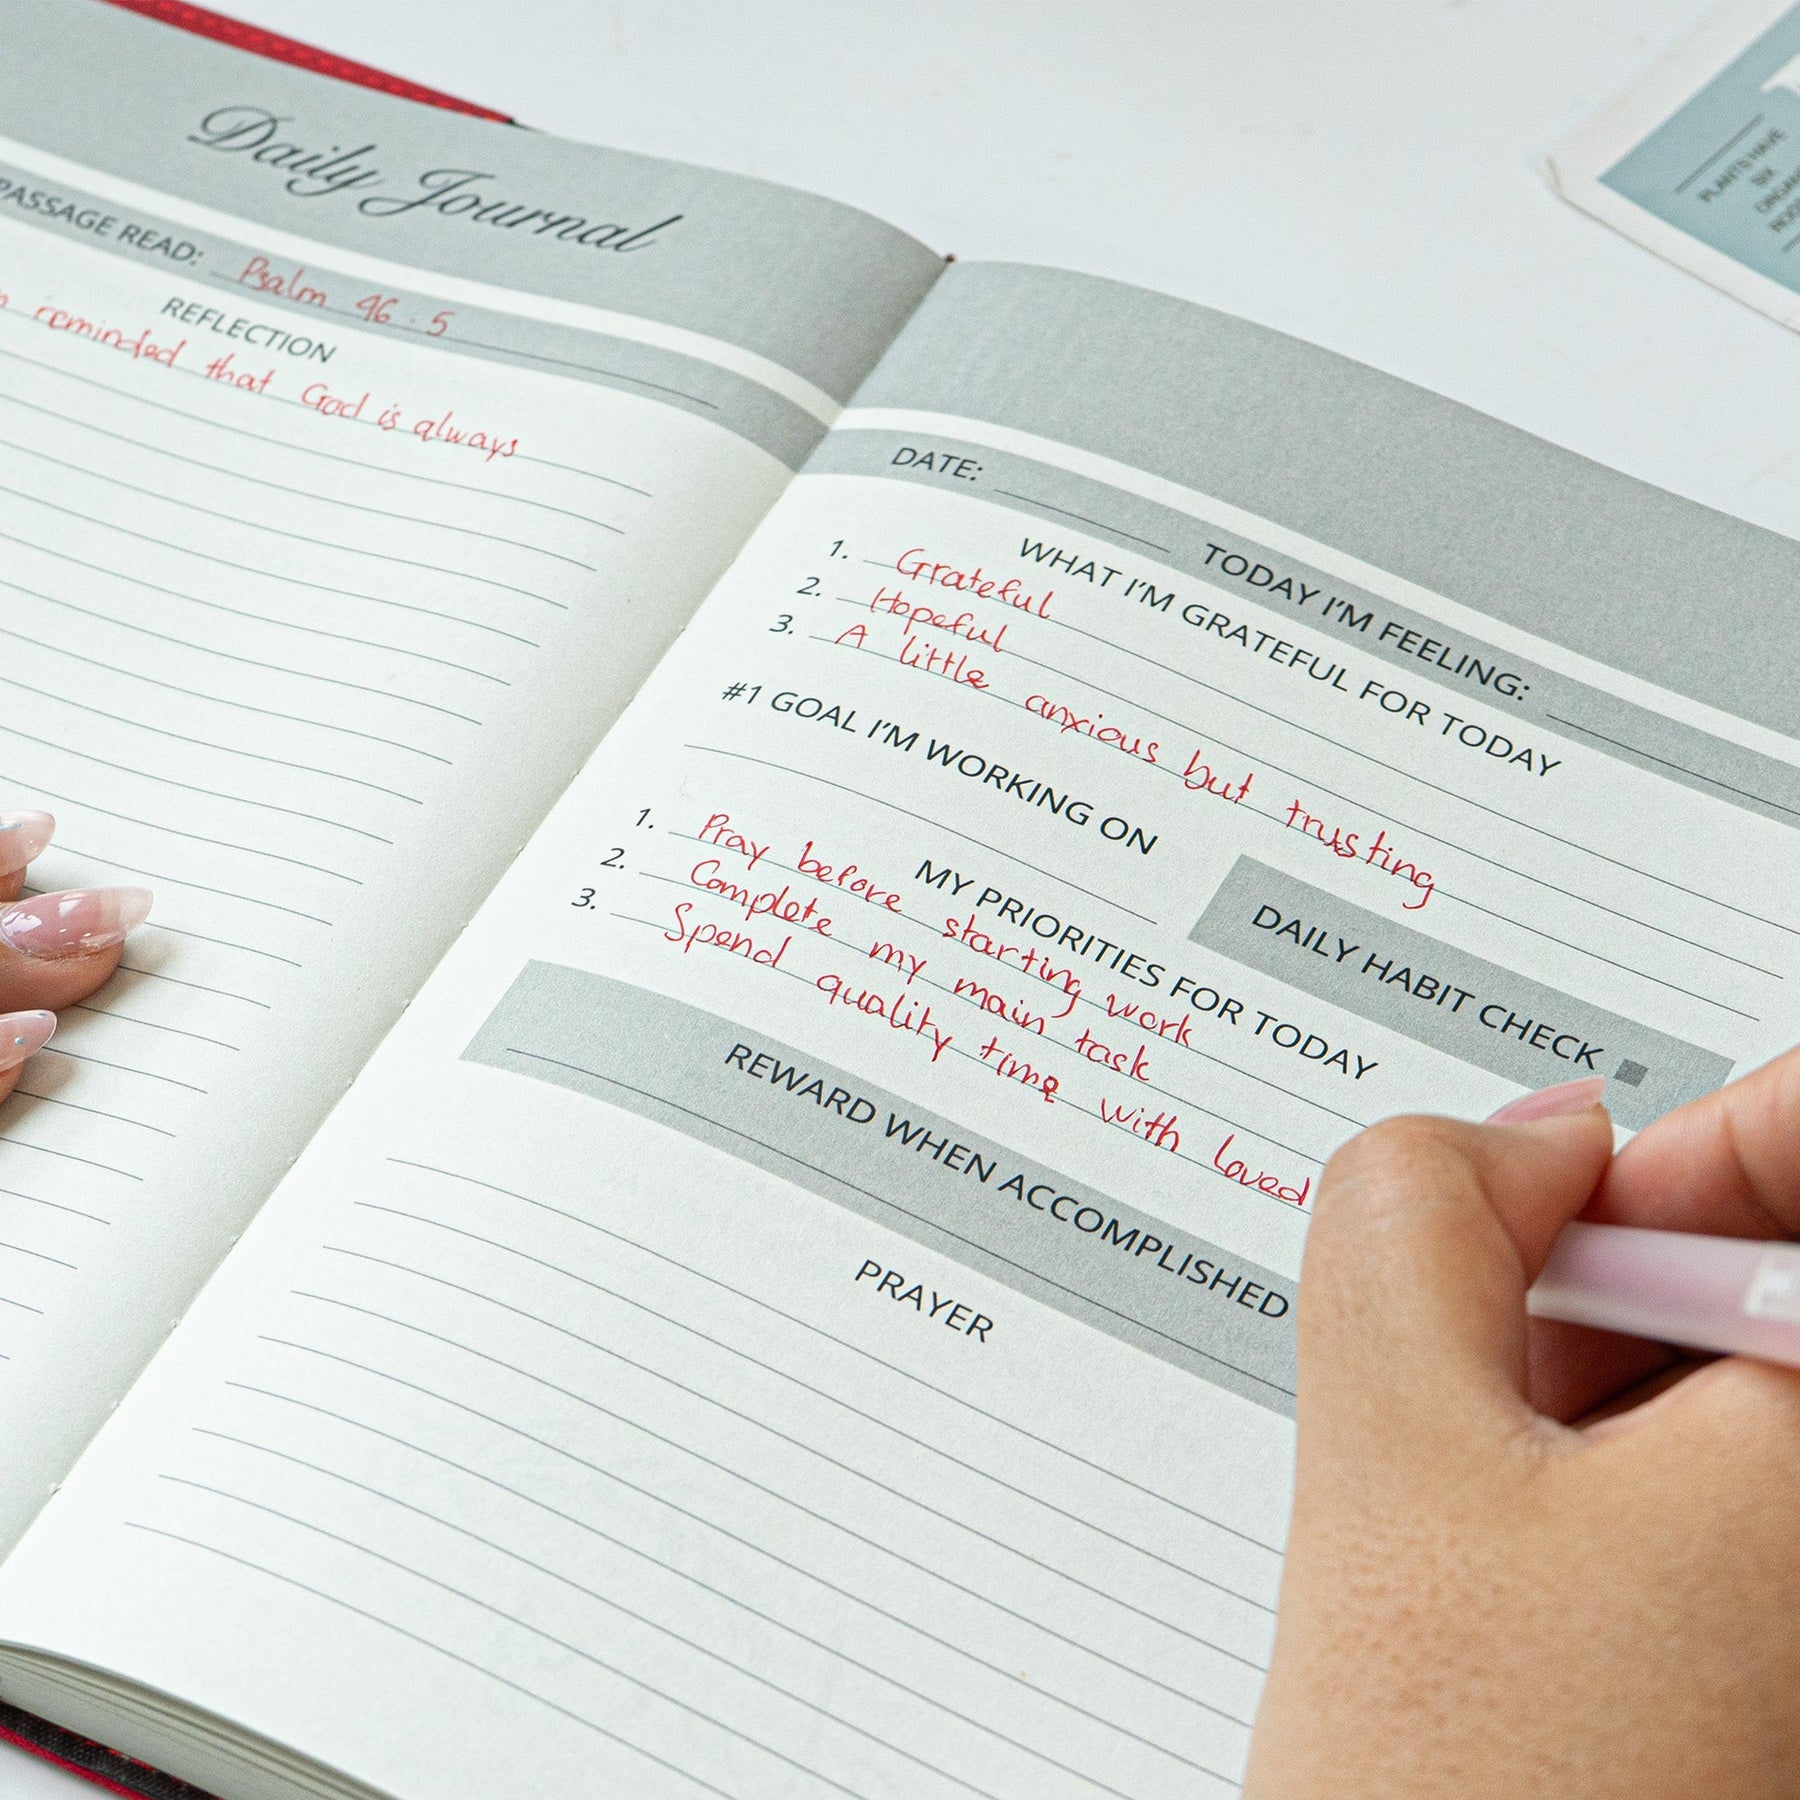 Daily Journal
PASSAGE READ: Psalm 46:5
REFLECTION
reminded that God is always
DATE: TODAY I'M FEELING:
WHAT I'M GRATEFUL FOR TODAY
1. Grateful
2. Hopeful
3. A little anxious but trusting
#1 GOAL I'M WORKING ON
DAILY HABIT CHECK
MY PRIORITIES FOR TODAY
1. Pray before starting work
2. Complete my main task
3. Spend quality time with loved
REWARD WHEN ACCOMPLISHED
PRAYER
PLANTS HAVE